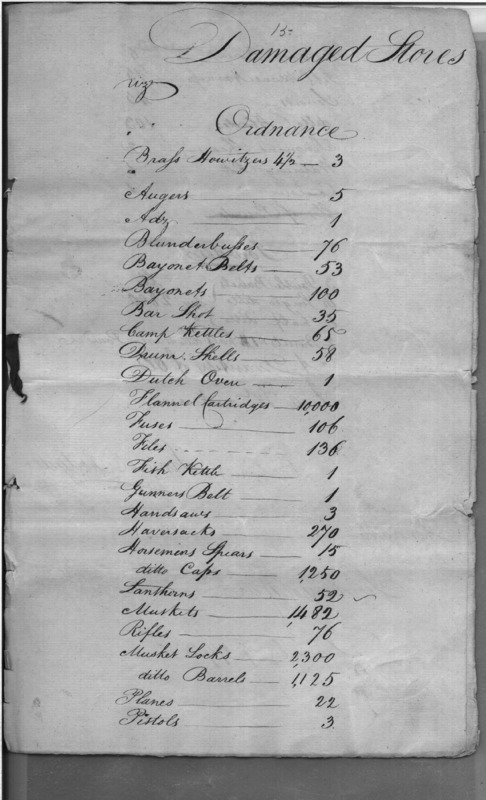 15-
Damaged Stores
viz
Ordnance
Brass Howitzers 4 1/2 — 3
Augers — 5
Adz — 1
Blunderbusses — 76
Bayonet Belts — 53
Bayonets 100
Bar Shot 35
Camp Kettles — 65
Drum Shells — 58
Dutch Oven — 1
Flannel Cartridges — 10,000
Fuses — 106
Files - - - - - 136
Fish Kettle — 1
Gunners Belt — 1
Handsaws — 3
Haversacks — 270
Horsemens Spears — 15
ditto Caps — 1,250
Lanthorns — 52
Muskets — 1,482
Rifles — 76
Musket Locks — 2,300
ditto Barrels — 1,125
Planes — 22
Pistols — 3